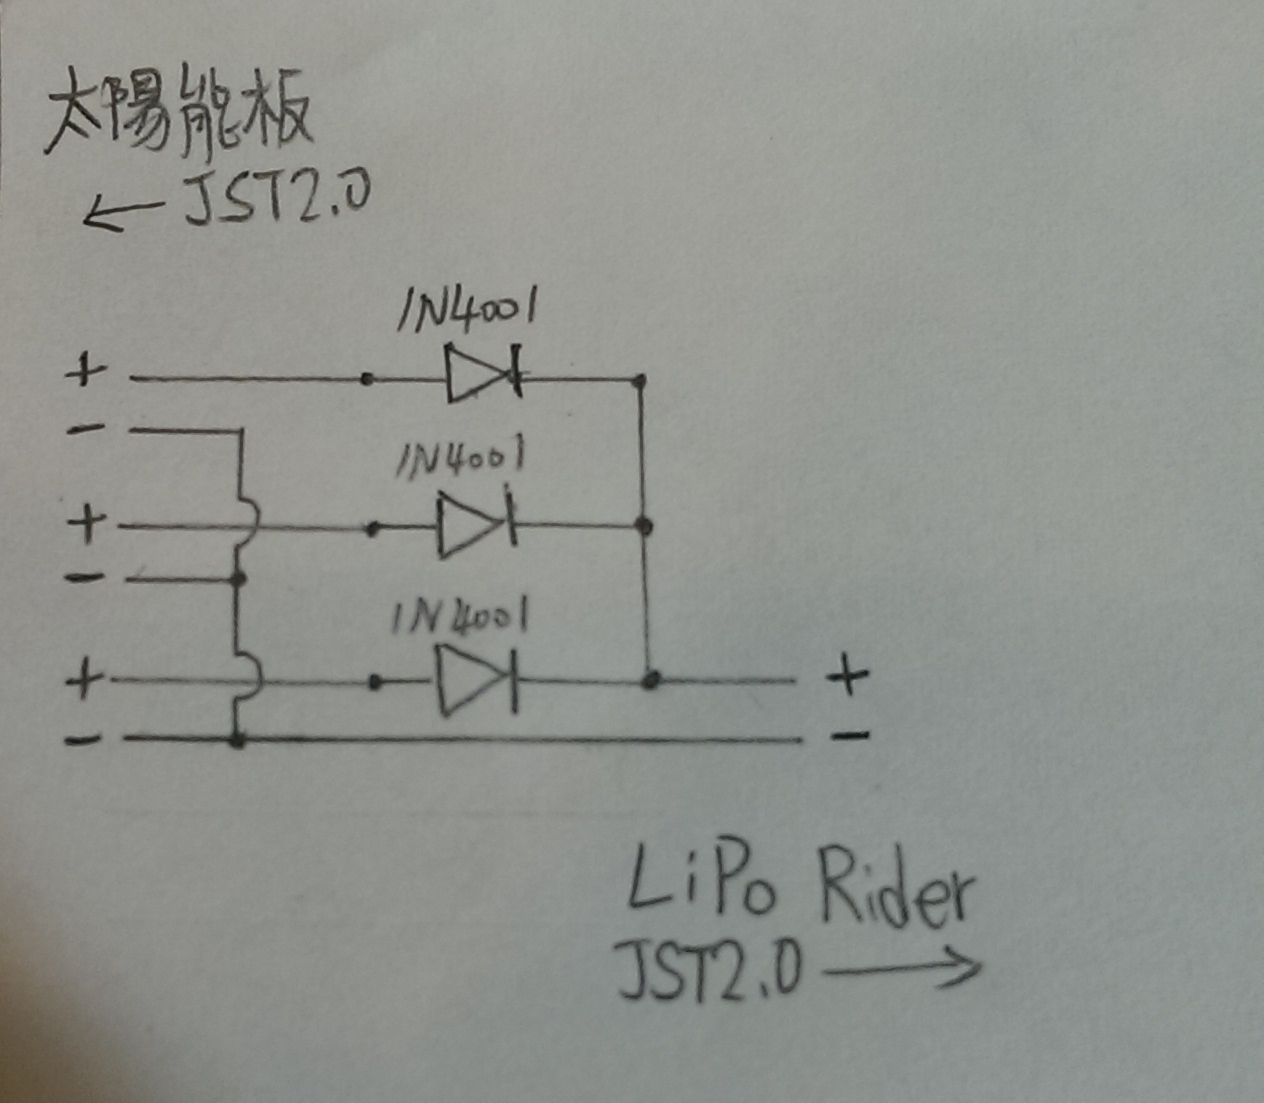 太陽能板
← JST2.0
1N4001
+
-
1N4001
+
-
1N4001
+
-
+
-
LiPo Rider
JST2.0 →